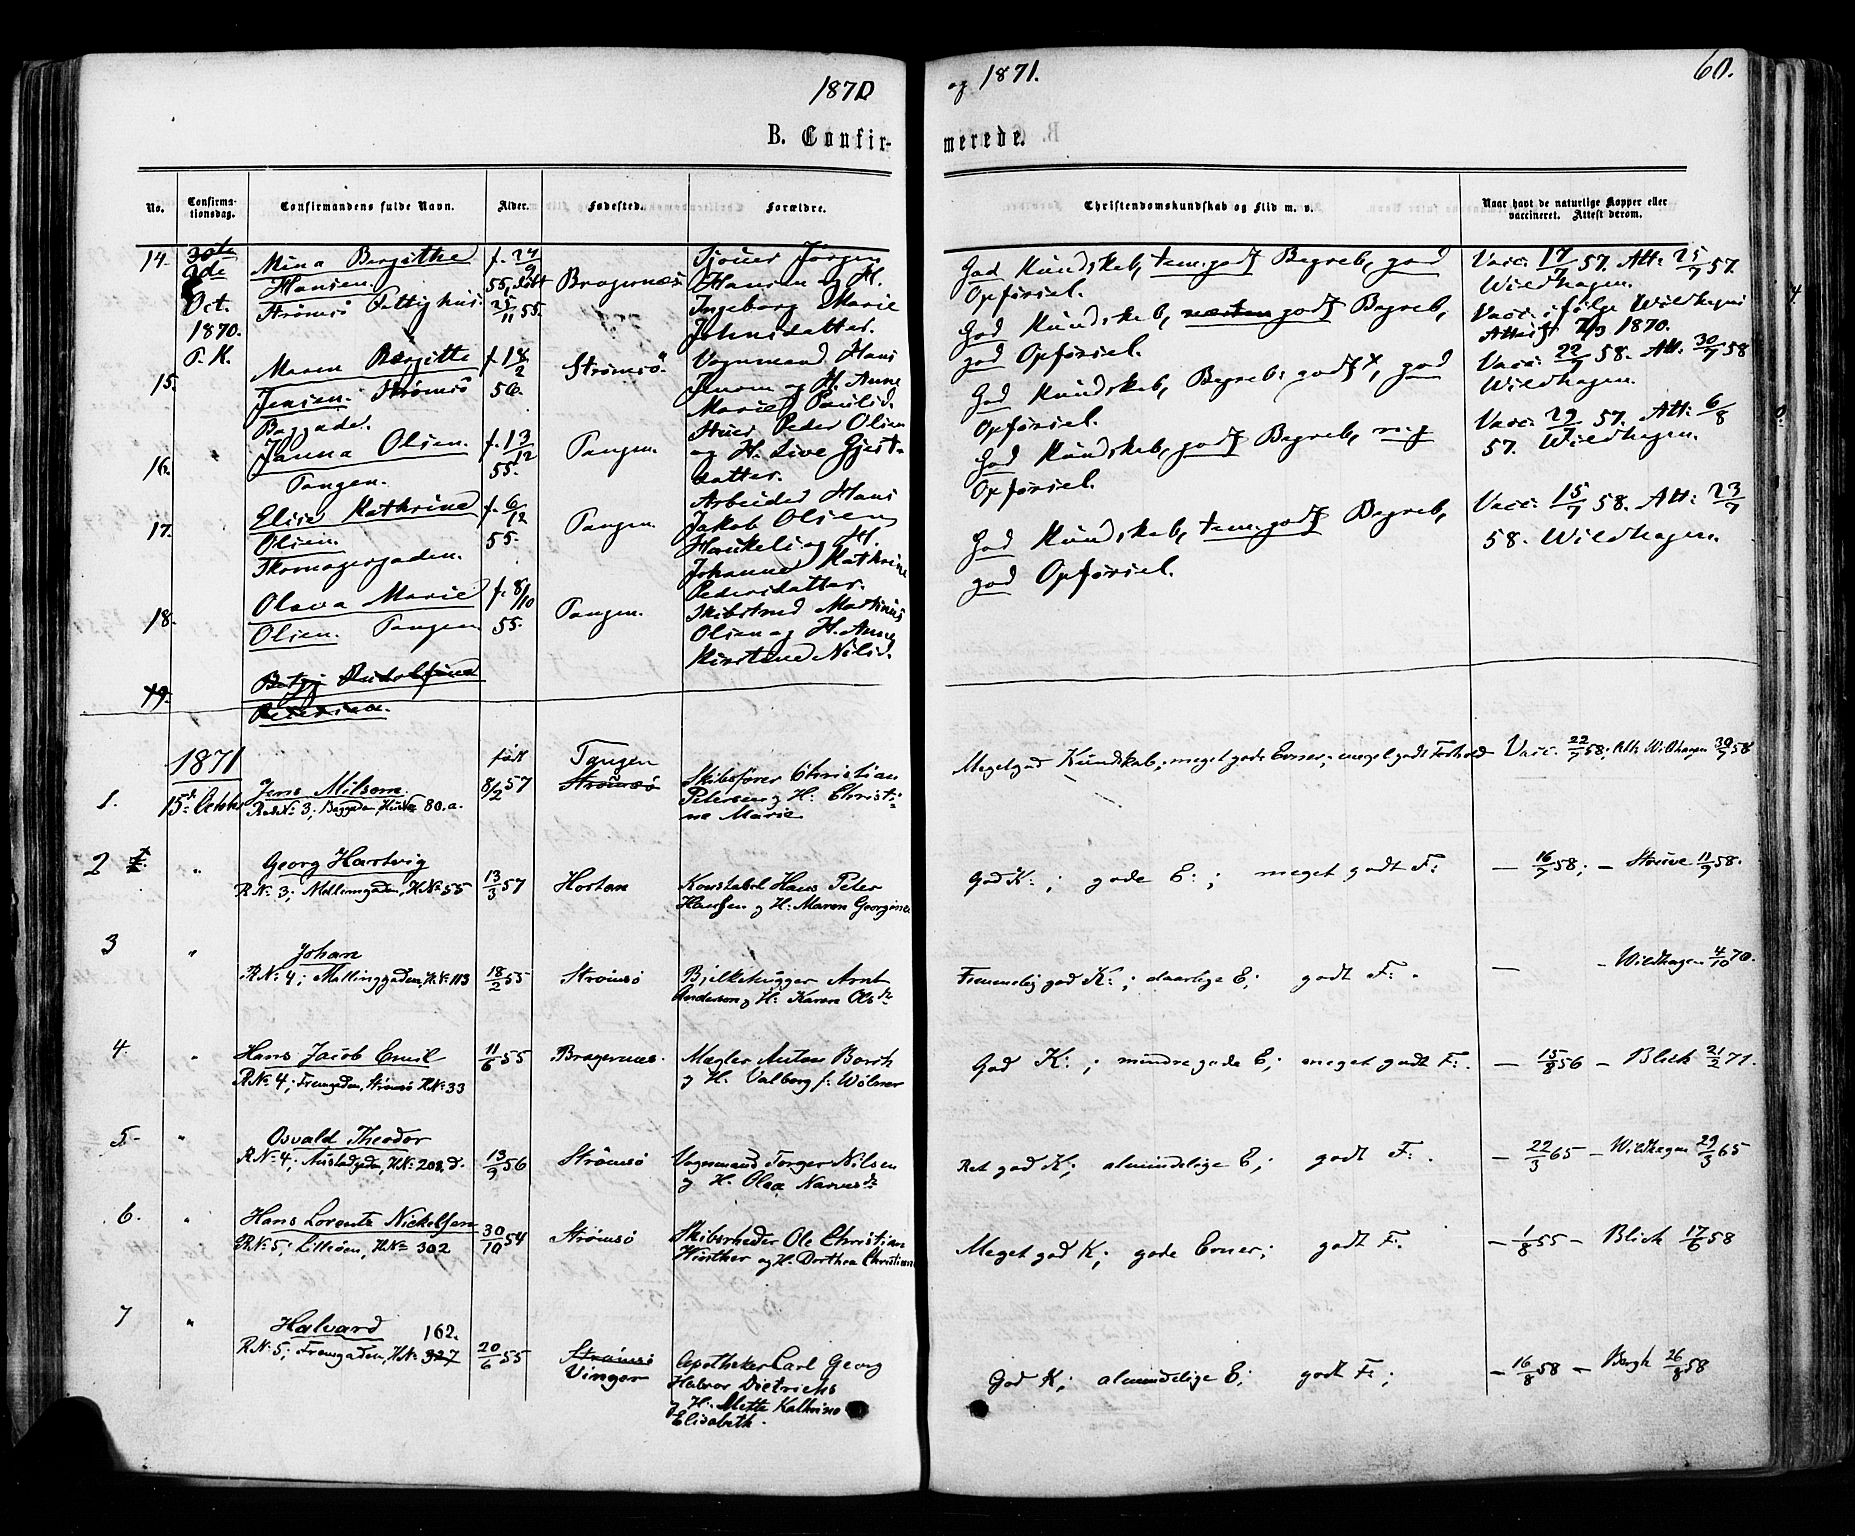 1870
og 1871.
60.
B. Confir-
merede.
No.
Confirma-
tionsdag.
Confirmandens fulde Navn.
Alder.
Fødested.
Forældre.
Christendomskundskab og Flid m. v.
Naar havt de naturlige Kopper eller
vaccineret. Attest derom.
14.
2de
Oct.
1870.
T. K.
Mina Bergithe
Hansen.
Strømsö Fattighus.
f. 24/9
55, döbt
25/11 55.
Bragernæs
Jørgen
Hansen og H.
Ingeborg Marie
Johnsdatter.
God Kundskab, tem. godt Begreb, god
Opførsel.
Vacc. 17/7 57. Att: 25/7 57.
Wildhagen.
15.
Maren Bergitte
Jensen. Strømsö
Baggade.
f. 18/2
56.
Strømsö.
Vognmand Hans
Jenson og H. Anne
Marie Paulsd.
God Kundskab, næsten godt Begreb,
god Opførsel.
Vacc. ifølge Wildhagens
Attest 7/9 1870.
16.
Janna Olsen.
Tangen.
f. 13/12
55.
Tangen.
Peder Olsen
og H. Live Gjest-
datter.
God Kundskab, Begreb: godt, god
Opførsel.
Vacc: 22/7 58. Att. 30/7 58
Wildhagen.
17.
Elise Kathrine
Olsen.
Skomagergaden.
f. 6/12
55.
Tangen.
Arbeider Hans
Jakob Olsen
og H.
Johanne Kathrine
Pedersdatter.
God Kundskab, godt Begreb, meg
Opførsel.
Vacc: 29/7 57. Att: 6/8
57. Wildhagen.
18.
Olava Marie
Olsen. Tangen
f. 8/10
55.
Tangen.
Skibstmd Martinus
Olsen og H. Anne
Kirstine Nilsd.
God Kundskab, tem. godt Begreb,
god Opførsel.
Vacc: 15/7 58. Att: 23/7
58. Wildhagen.
19.
Petersen.
1871
1.
15de Octbr
Jens Milsom
Rode No 3; Baggaden, Hus No 80.a.
født
8/2 57
Tangen
Strömsö
Skibsfører Christian
Petersen og H: Christi-
ne Marie
Meget god Kundskab; meget gode Evner; meget godt Forhold
Vacc. 22/7 58; Att. Wildhagen 30/7 58
2
"
Georg Hartvig
R No 3; Møllerngaden, H No 55
13/3 57
Horten
Konstabel Hans Peter
Hansen og H: Maren Georgine
God K: ; gode E: ; meget godt F:
— 16/7 58; — Struve 11/9 58.
3
"
Johan
R No 4; Møllinggaden, H No 113
18/2 55
Strömsö
Bjelkehugger Arnt
Anderson og H: Karen Olsdr
Temmelig god K: ; daarlige E; godt F: .
— — Wildhagen 4/10 70.
4.
"
Hans Jacob Emil
R No 4; Fremgaden, Strømsö H No 33
11/6 55
Bragernæs.
Mægler Anton Borch
og H. Valborg f: Wölner
God K: ; mindre gode E; meget godt F: .
— 15/8 56 — Blich 21/2 71.
5
"
Osvald Theodor
R No 4; Austadgaden, H No 208.d.
13/9 56
Strömsö
Vognmand Torger Nilsen
og H. Olea Narvesdr
Ret god K; almindelige E; godt F: .
— 22/3 65 — Wildhagen 29/3 65
6.
"
Hans Lorentz Nickelsen
R No 5; Lilleøen, H No 302
30/10 54
Strømsö
Skibsrheder Ole Christian
Wüsther og H. Dorthea Christiane
Meget god K; gode Evner; godt F:
— 1/8 55 — Blich 17/6 58
7
"
Halvard
R No 5; Fremgaden, H No 327 162.
20/6 55
Strömsö
Vinger
Apotheker Carl Georg
Halvor Dietrichs
og H. Mette Kathrine
Elisabeth.
God K; almindelige E; godt F: ;
— 16/8 58 — Borgh 26/8 58